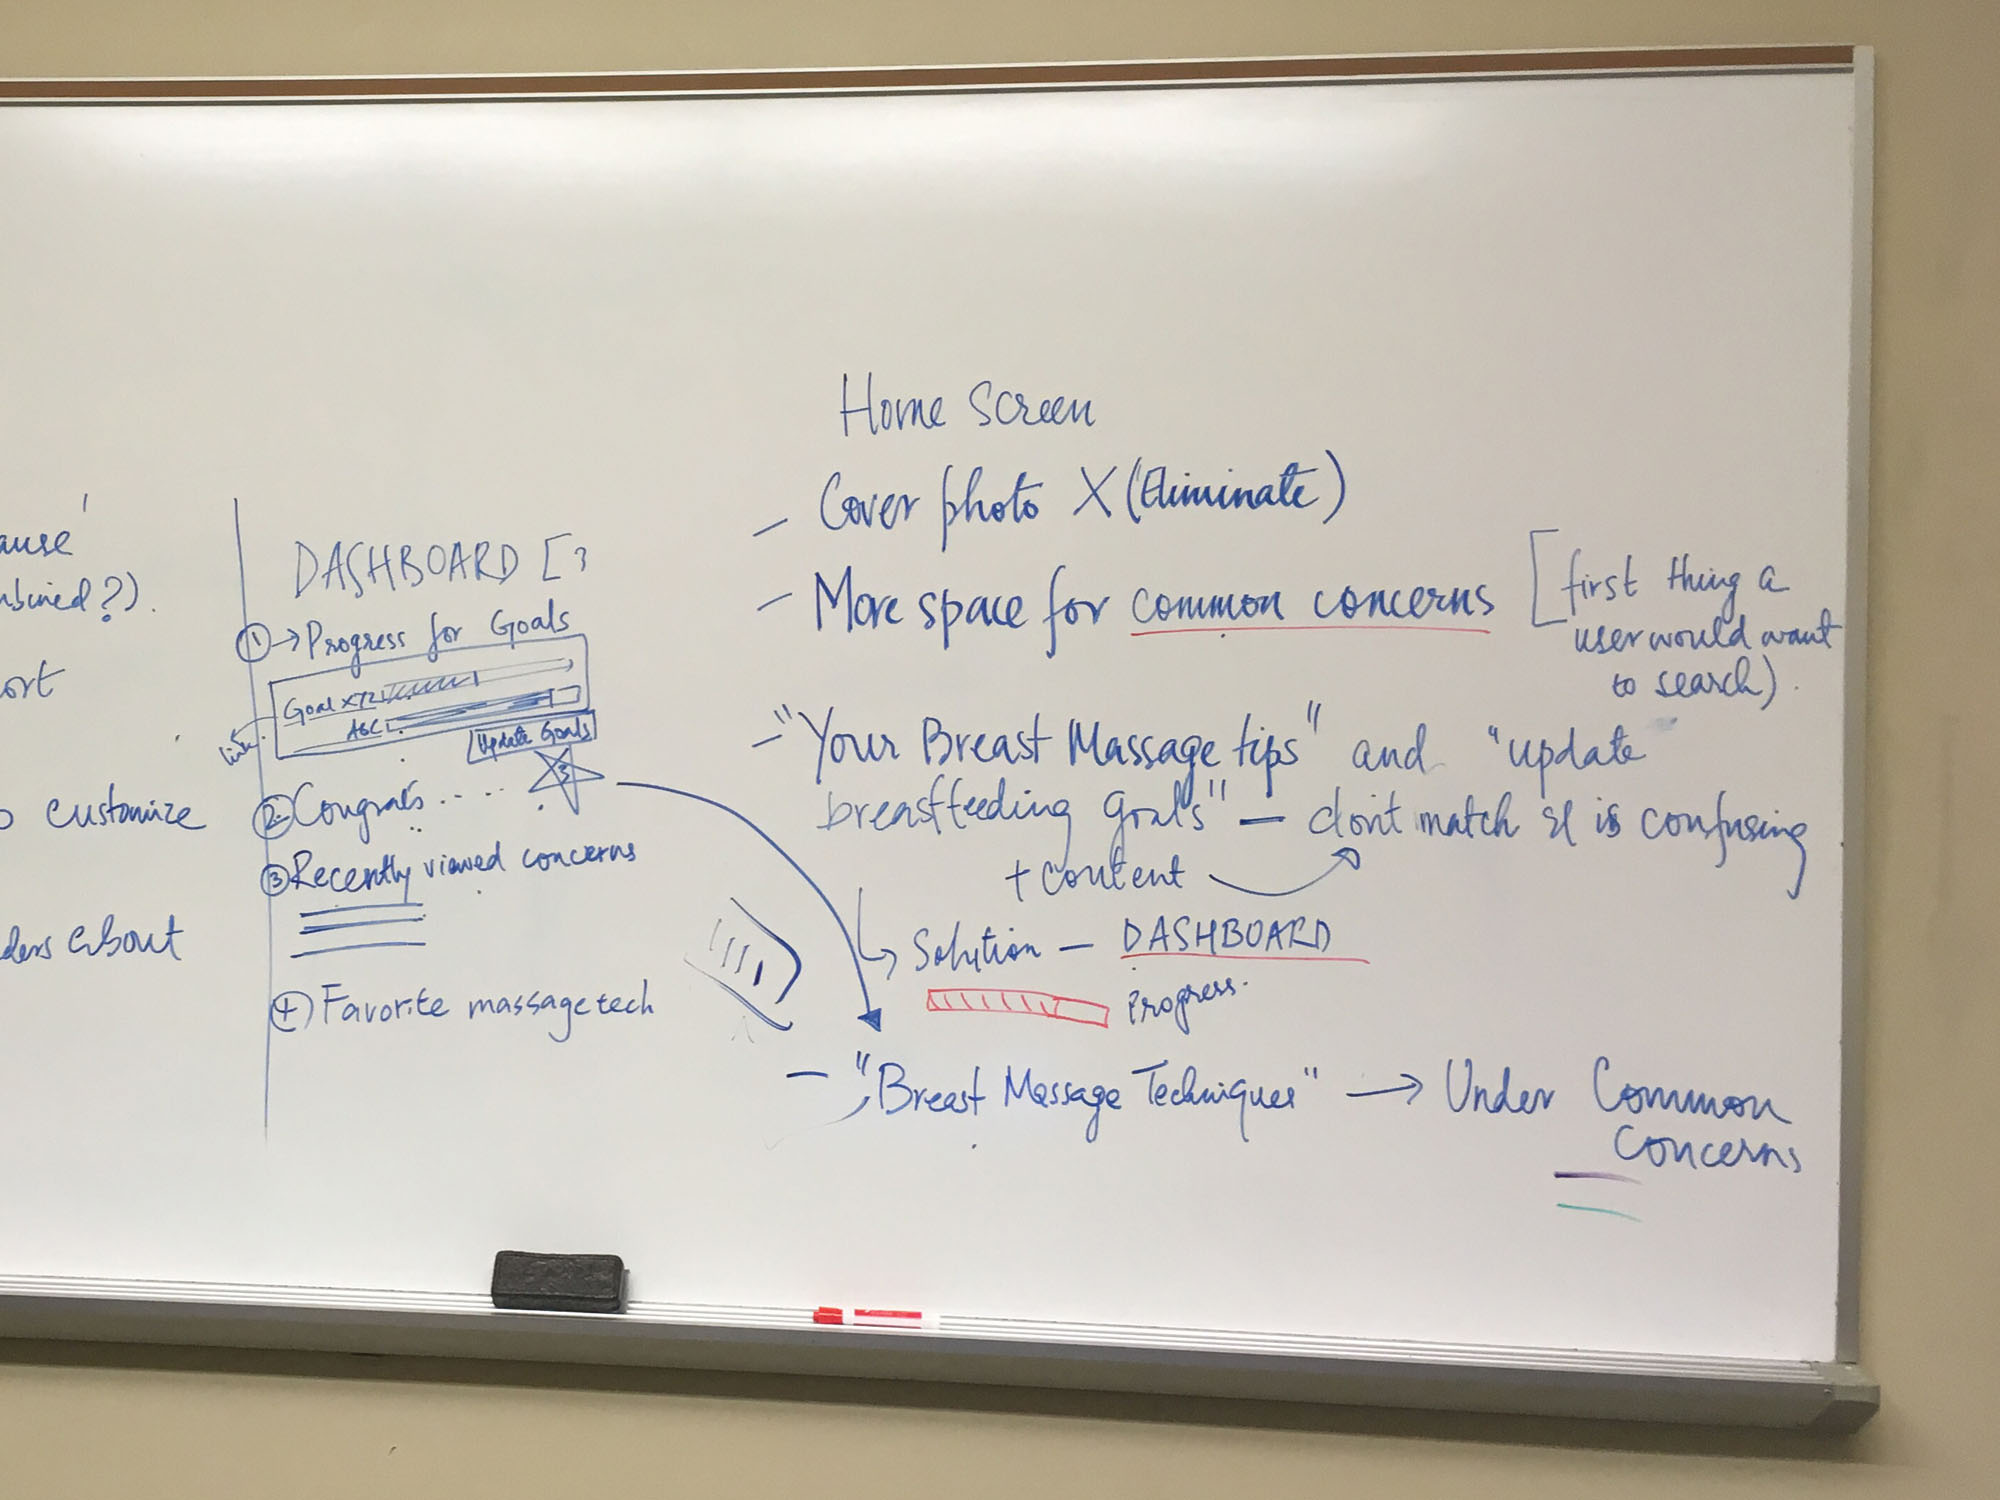 ause
mbined?).
ort
customize
ders about
DASHBOARD [
① → Progress for Goals
Goal XYZ
ABC
link
Update Goals
② Congrats.....
3
③ Recently viewed concerns
④ Favorite massage tech
Home Screen
– Cover photo X (Eliminate)
– More space for common concerns
[first thing a
user would want
to search).
– "Your Breast Massage tips" and "update
breastfeeding Goals" – don't match & is confusing
+ content
↳ Solution – DASHBOARD
Progress.
– "Breast Massage Techniques" → Under Common
Concerns